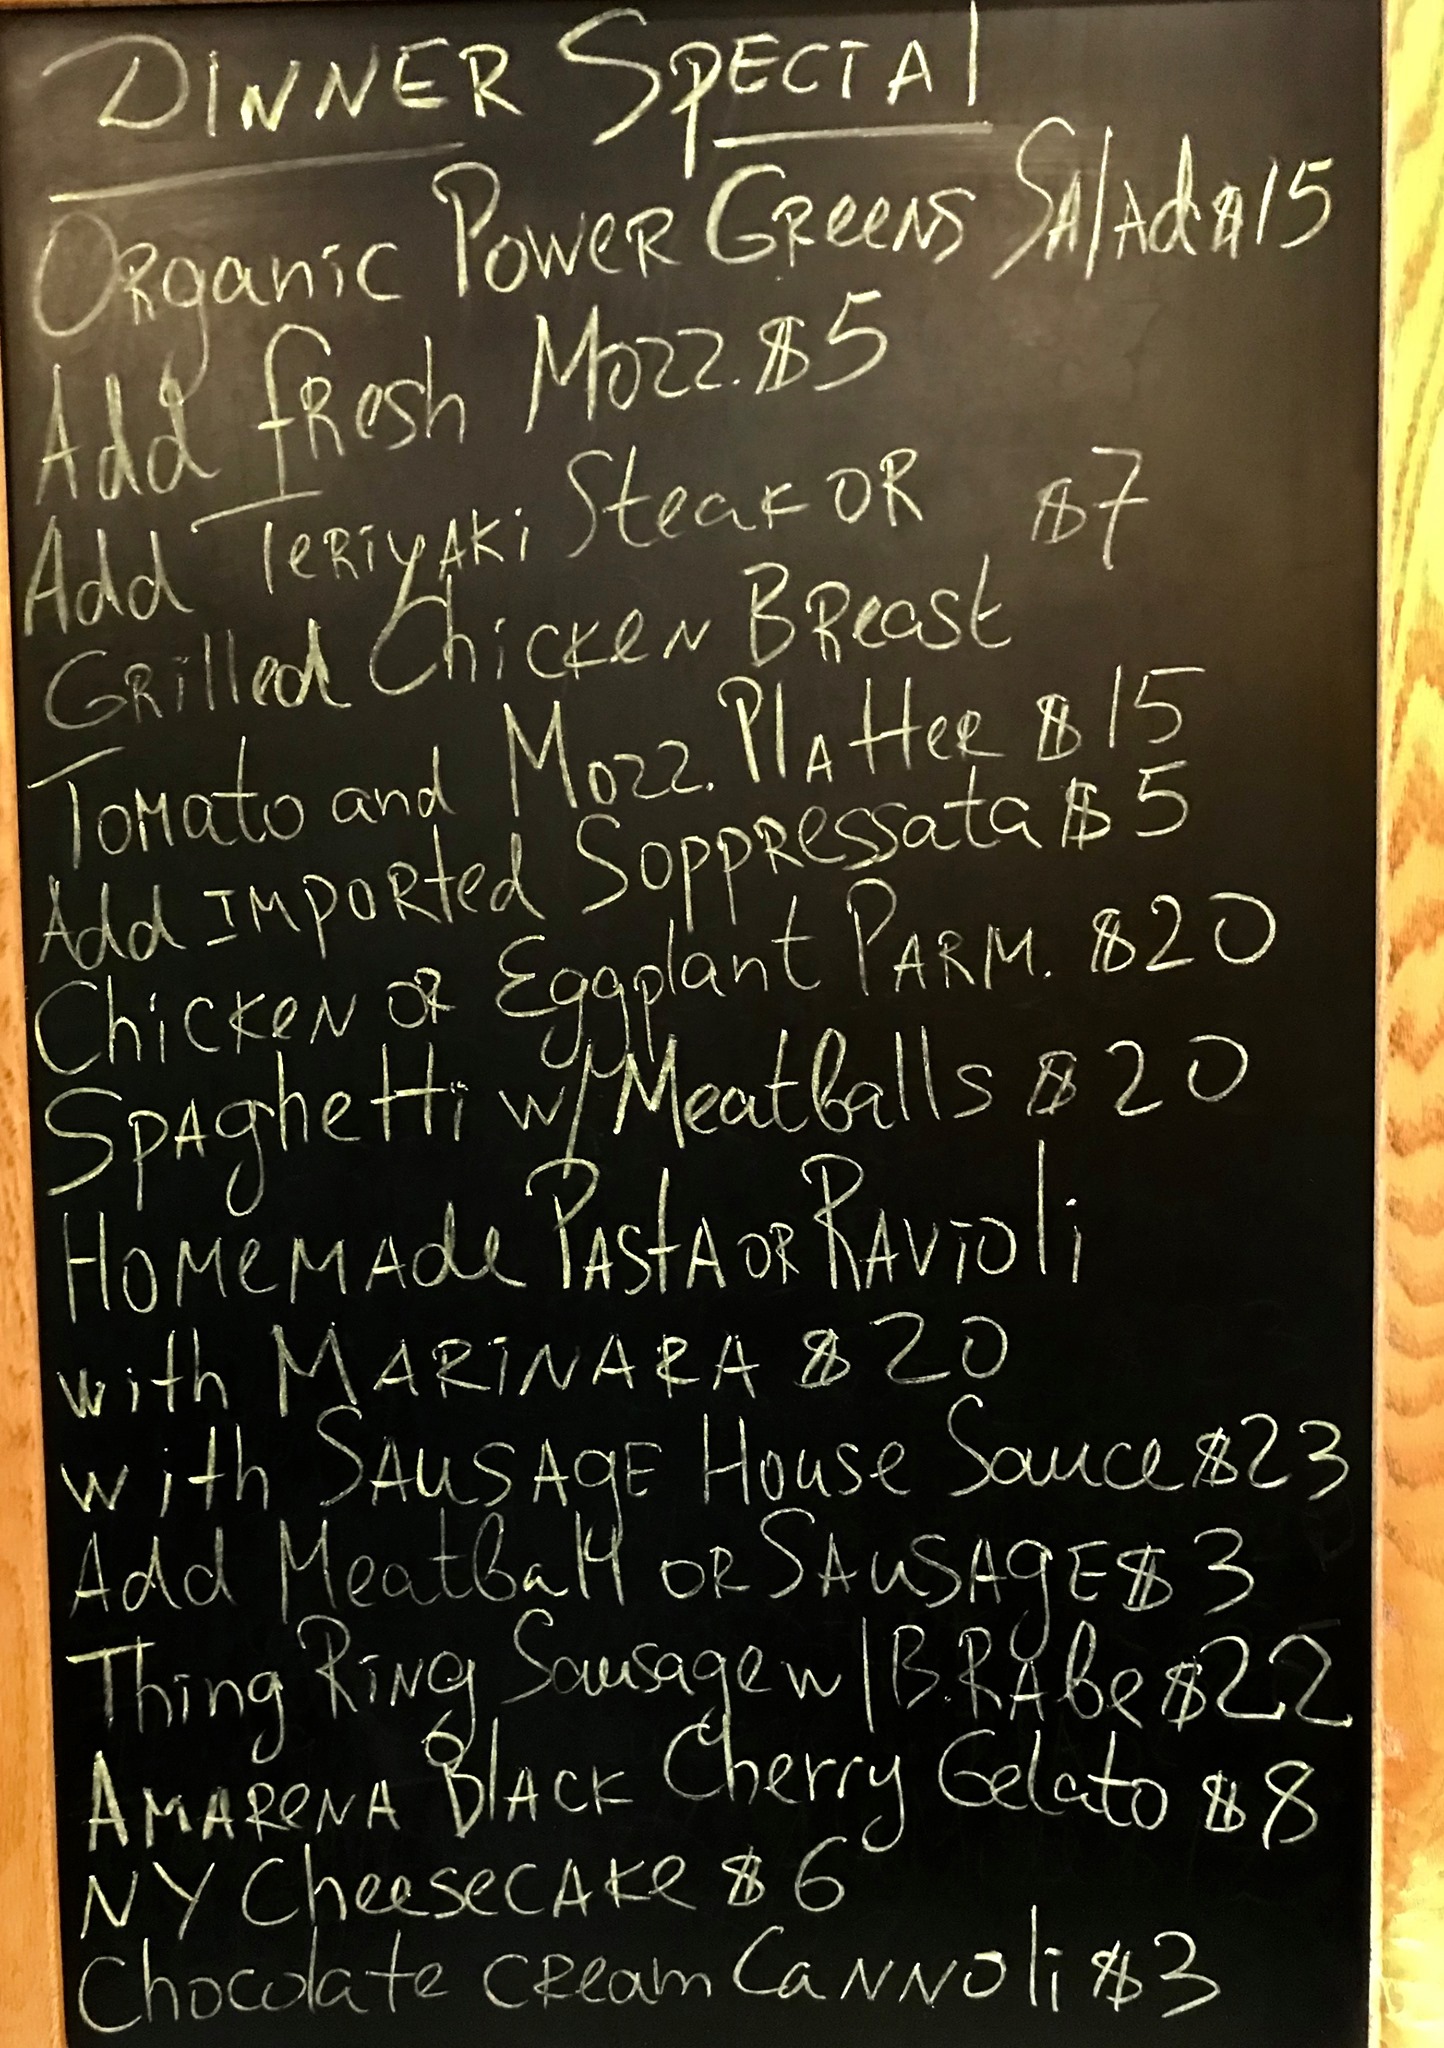 DINNER SPECIAL
ORganic POWER GReeNS SAlAd $15
Add fResh Mozz. $5
Add TeRiyAKi SteaK OR $7
GRilled ChicKeN BReast
TOMato and Mozz. PlAtteR $15
Add IMPORted SOPPRessata $5
ChicKeN OR Eggplant PARM. $20
SPAghetti w/ Meatballs $20
HOMeMAde PAStA OR RAViOli
with MARiNARA $20
with SAuSAgE House Sauce $23
Add Meatball OR SAuSAgE $3
Thing RiNg Sausage w/ B.RAbe $22
AMAReNA BlACK Cherry Gelato $8
NY CheeseCAKe $6
Chocolate CReam CaNNOli $3